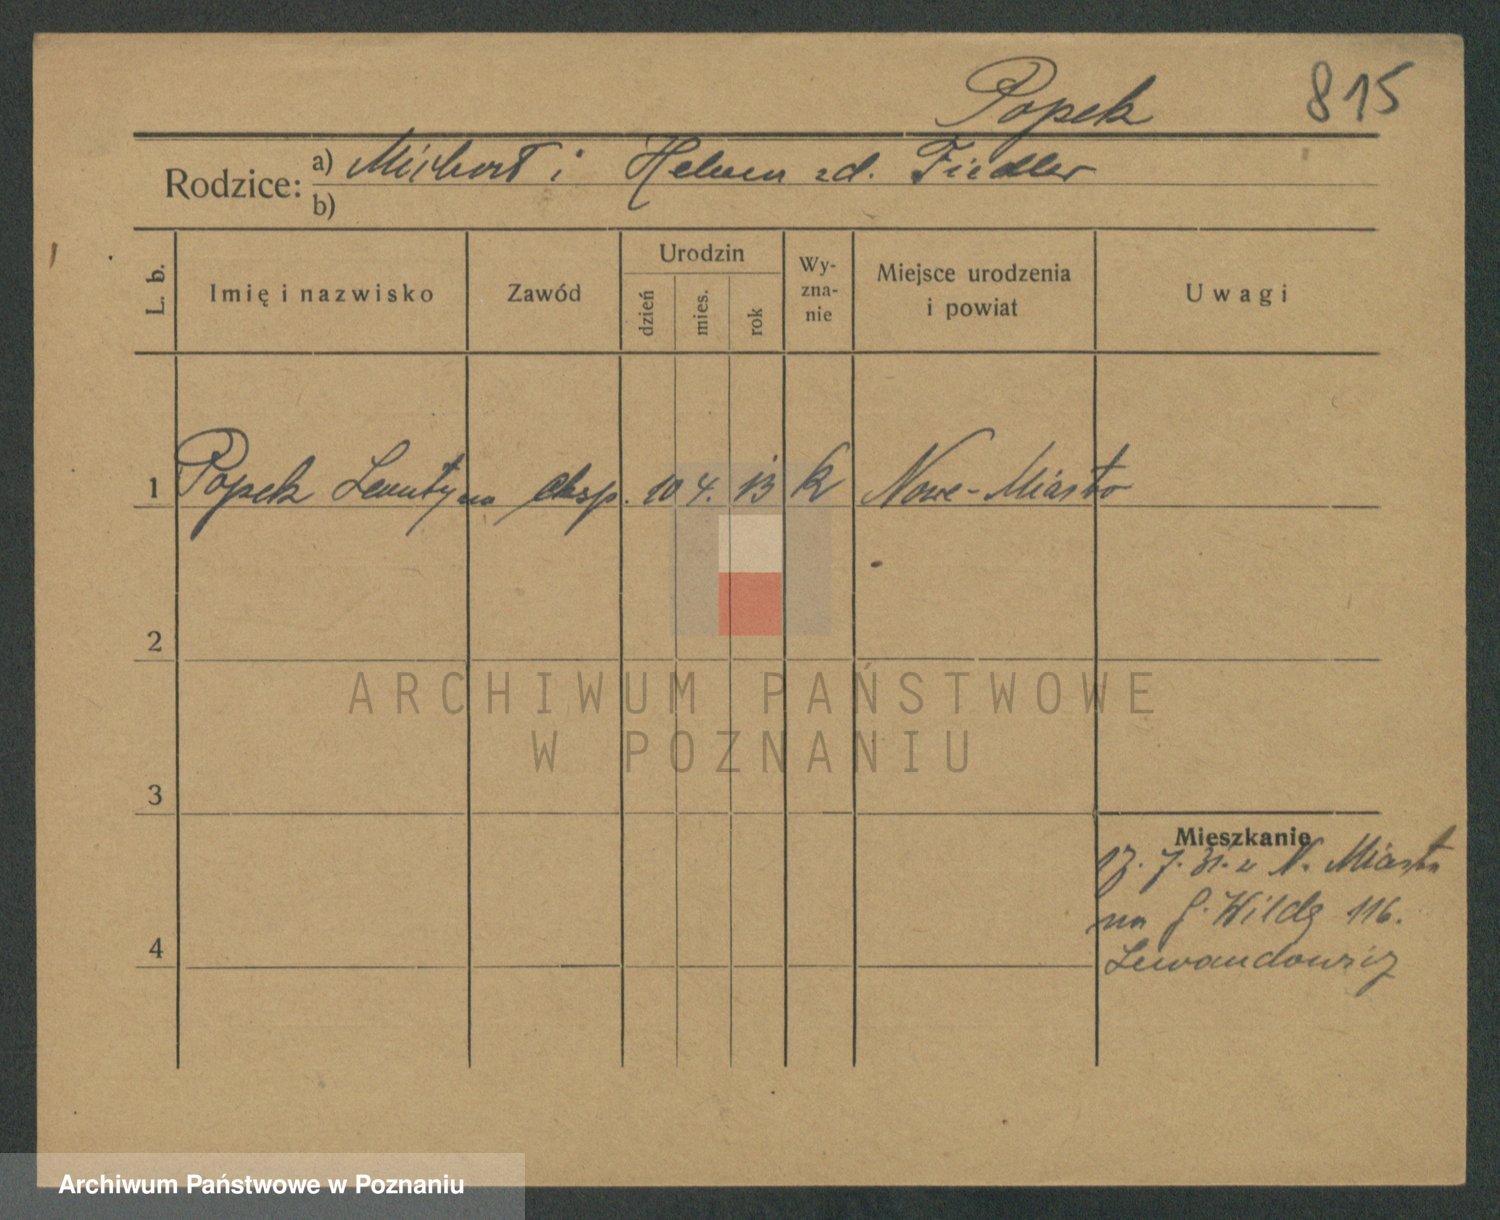 Popek 815
Rodzice: a) Michał i Helena zd. Fiedler
b)
L. b. Imię i nazwisko Zawód Urodzin dzień mies. rok Wy-zna-nie Miejsce urodzenia i powiat Uwagi
1 Popek Leontyna eksp. 10 4. 13 k Nowe-Miasto
2
ARCHIWUM PAŃSTWOWE
W POZNANIU
3
Mieszkanie
7. 31. z N. Miasta
na G. Wildę 116.
4
Lewandowicz
Archiwum Państwowe w Poznaniu